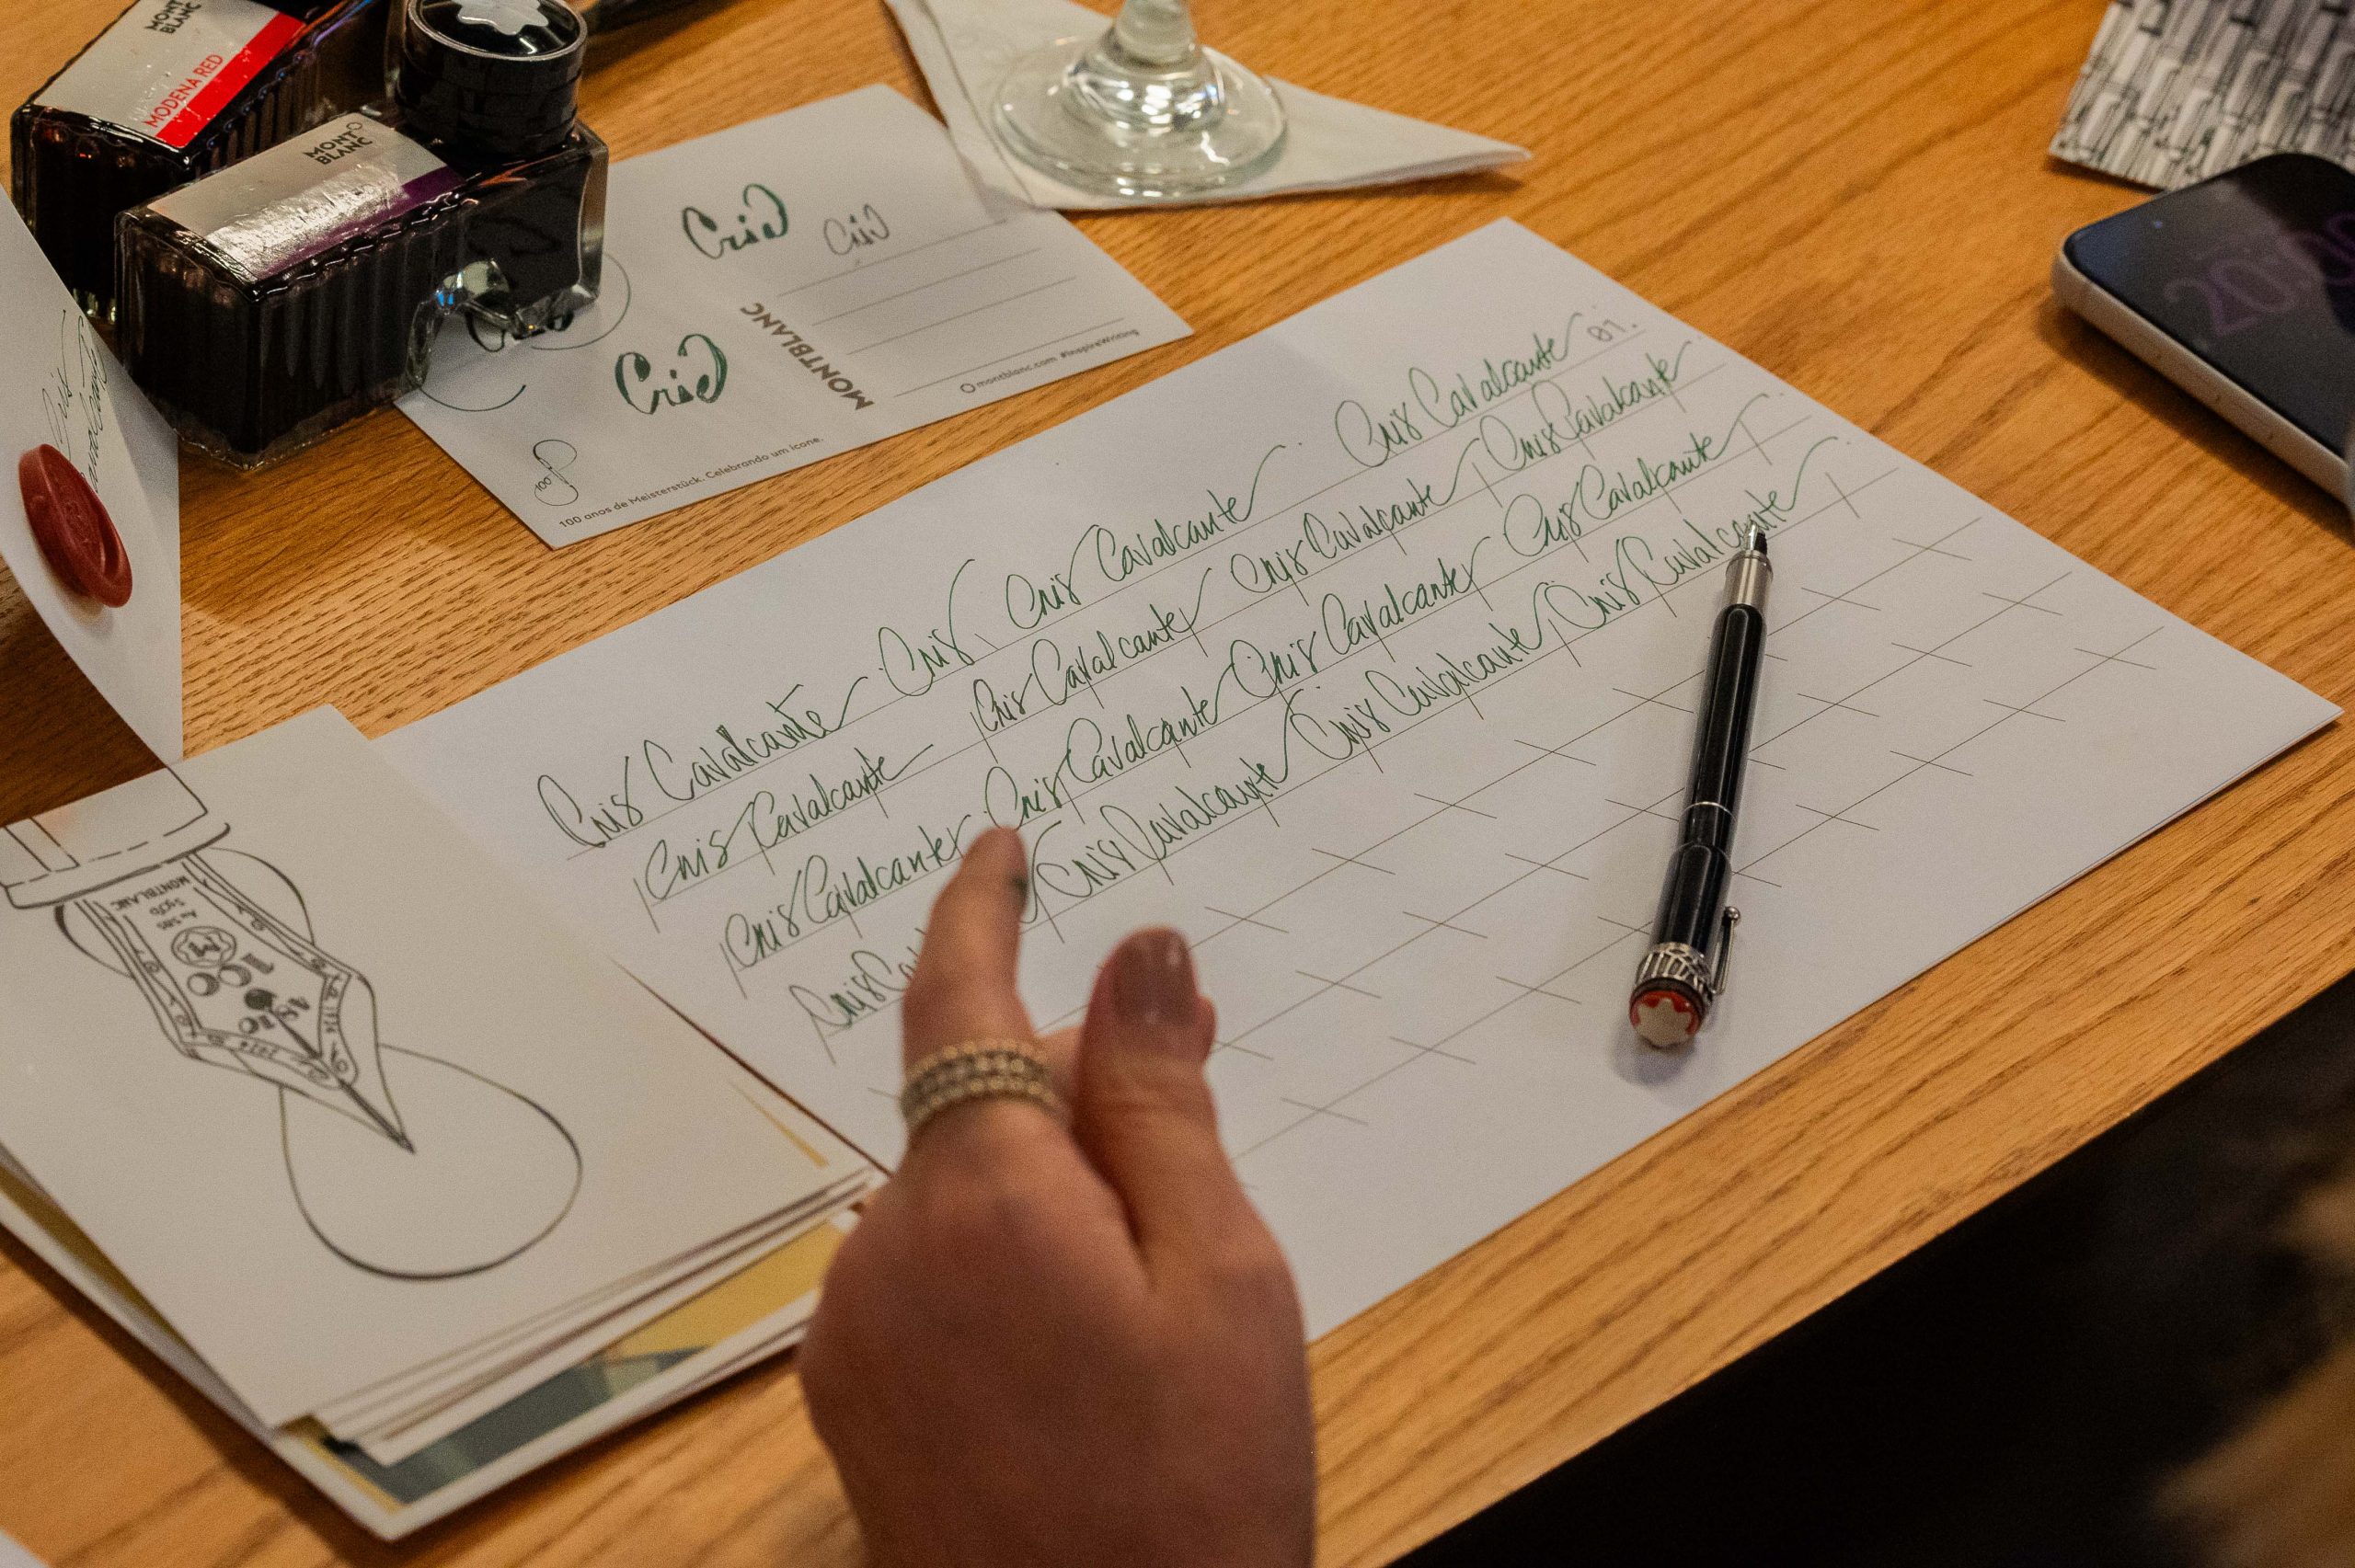 MONT
BLANC
MODENA RED
MONT
BLANC
Cris
Cris
Cris
MONTBLANC
montblanc.com #InspireWriting
100
100 anos de Meisterstück. Celebrando um ícone.
Cris
Cavalcante
Cris Cavalcante Cris Cris Cavalcante Cris Cavalcante 07.
Cris Cavalcante Cris Cavalcante Cris Cavalcante Cris Cavalcante
Cris Cavalcante Cris Cavalcante Cris Cavalcante Cris Cavalcante
Cris Cris Cavalcante Cris Cavalcante Cris Cavalcante
MONTBLANC
Au 585
M